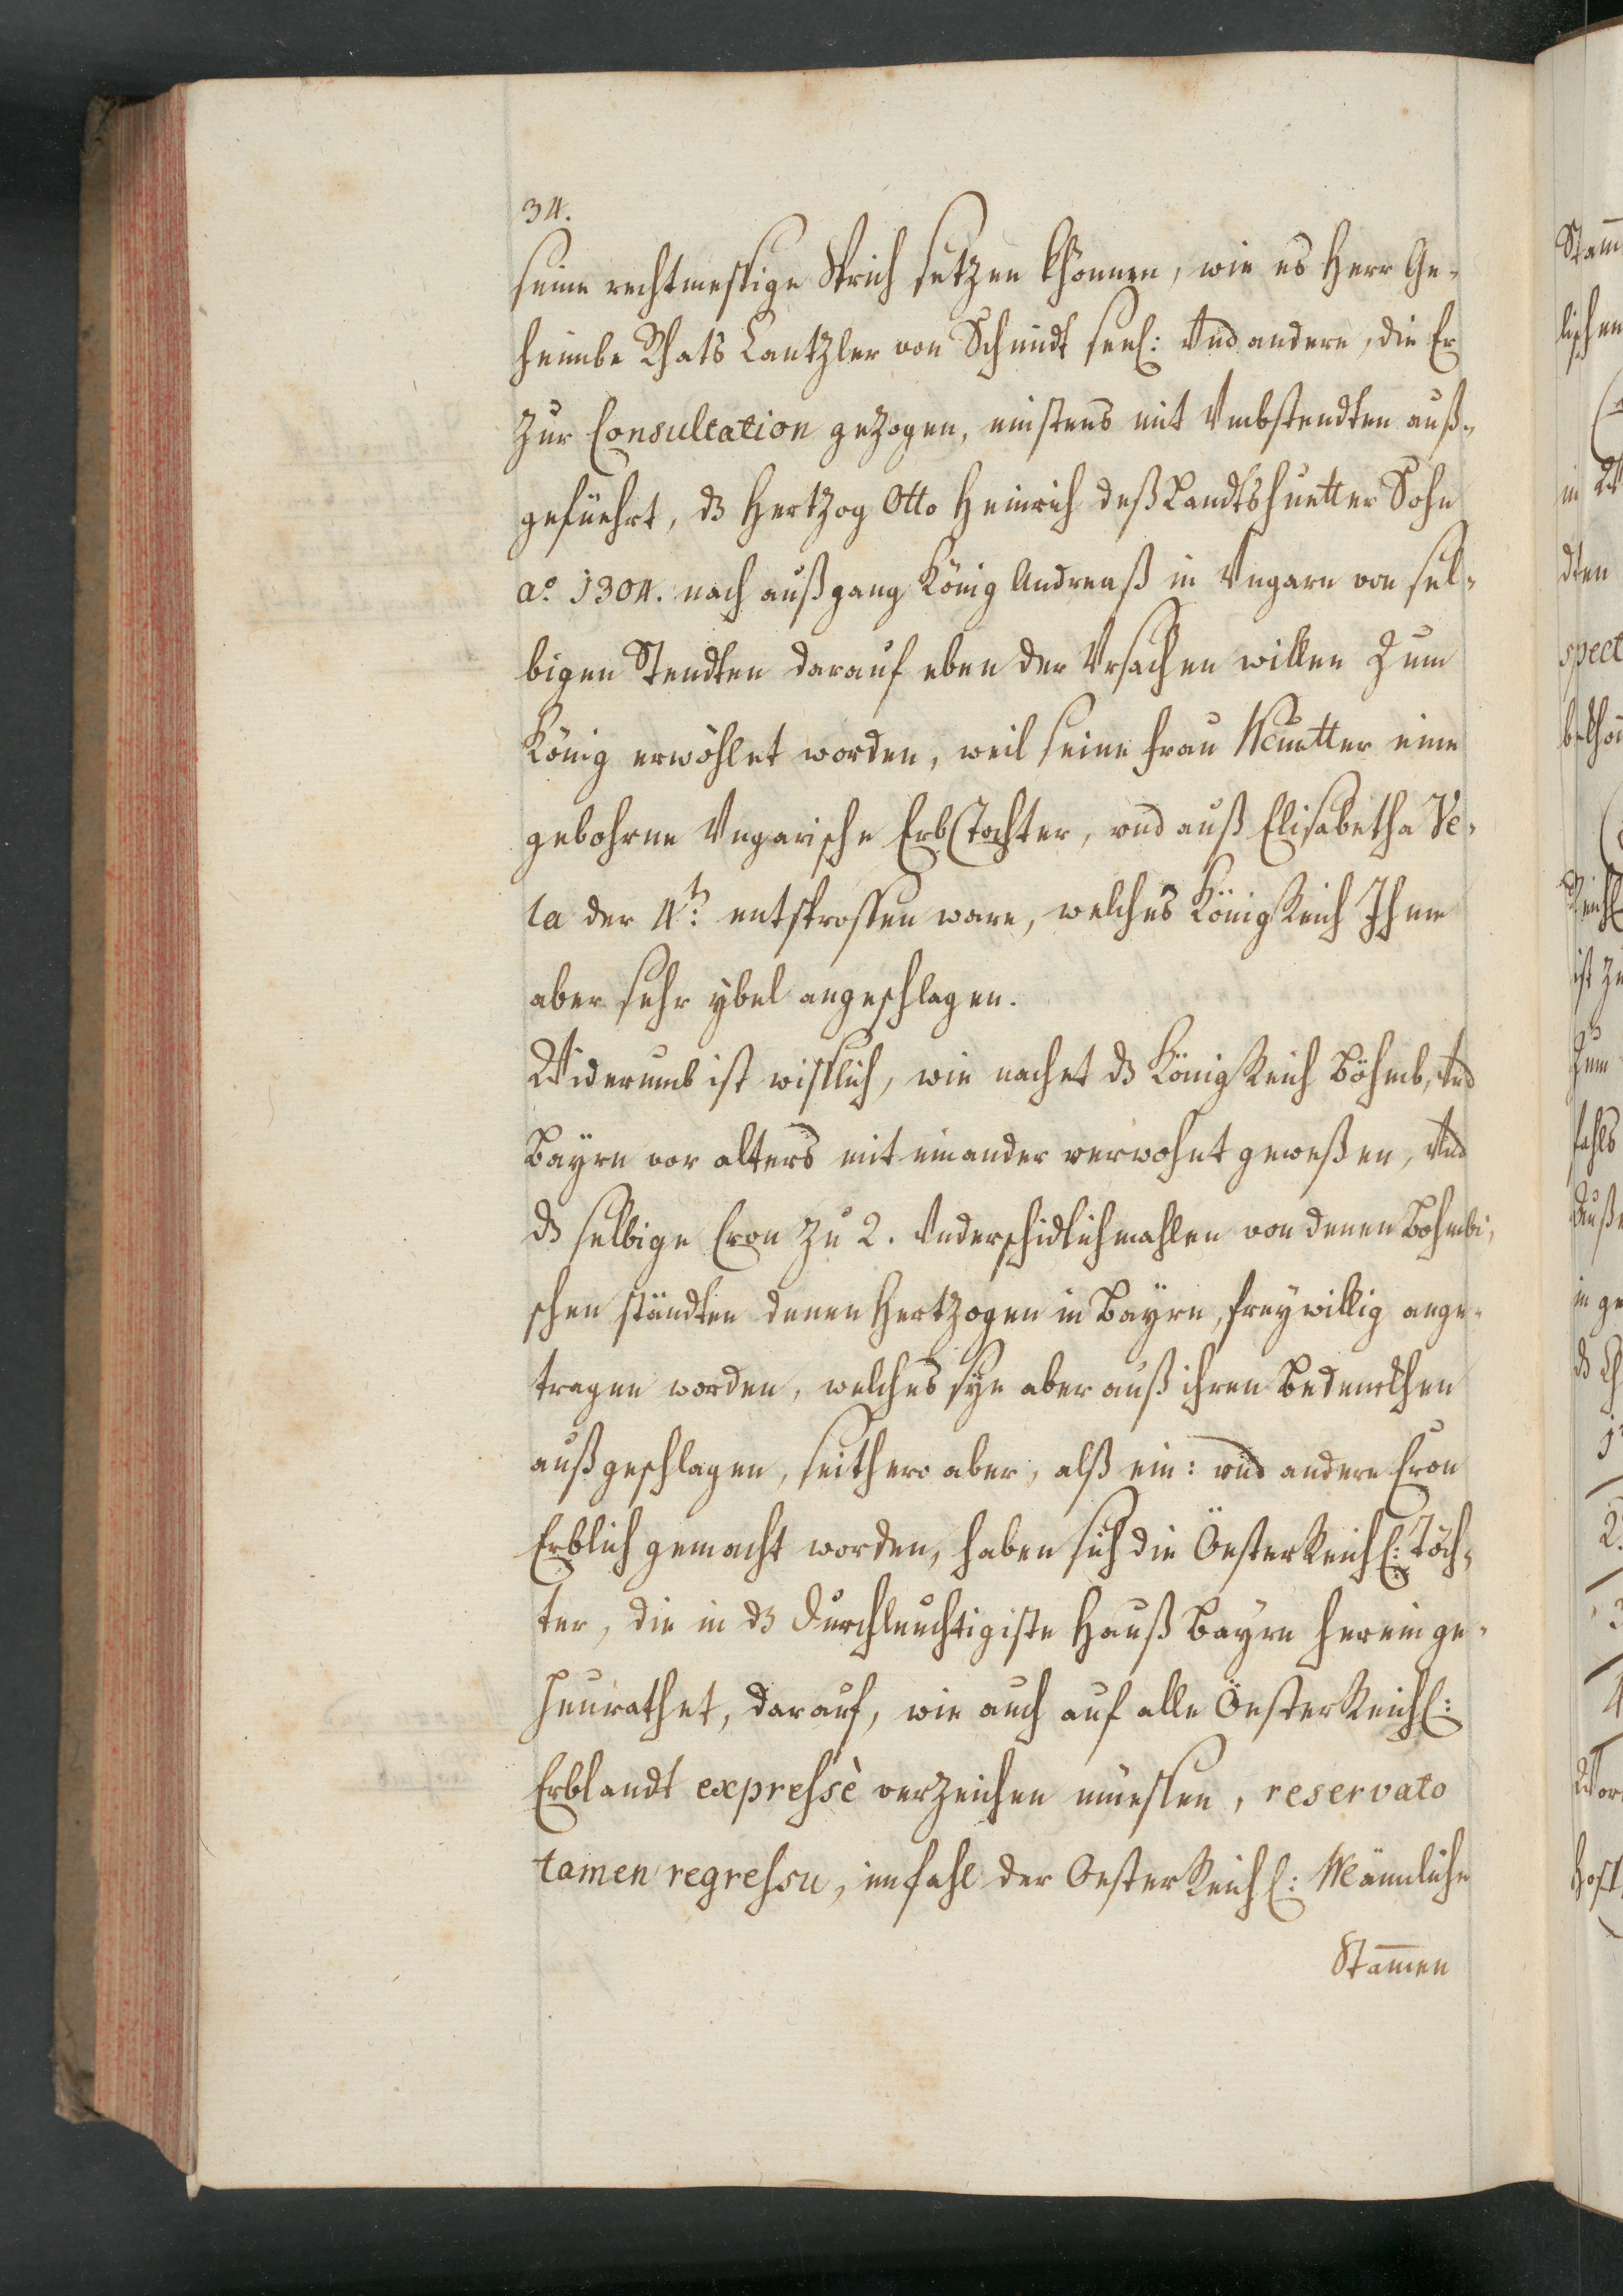 34.
seine rechtmessige Sprich setzen khönnen, wie es Herr Ge-
heimbe Rhats Cantzler von Schmidt seel: Vnd andere, die Er
zur Consultation gezogen, meistens mit Vmbstendten auß-
geführt, dz Hertzog Otto Heinrich deß Landtshuetter Sohn
aº. 1304. nach außgang König Andreaß in Vngarn von sel-
bigen Stendten darauf eben der Vrsachen willen zum
König erwöhlet worden, weil seine Frau Muetter eine
gebohrne Vngarische ErbTochter, vnd auß Elisabetha Be-
la der 4.t entsprossen ware, welches KönigReich Ihme
aber sehr ybel angeschlagen.
Widerumb ist wisslich, wie nachet dz KönigReich Böhmb, Vnd
Bayrn vor alters mit einander verwohnt geweßen, Vnd
dz selbige Cron zu 2. Vnderschidlichmahlen von denen Bohmbi-
schen ständten denen Hertzogen in Bayrn, freywillig ange-
tragen worden, welches sye aber auß ihren Bedenckhen
außgeschlagen, seithero aber, alß ein: vnd andere Cron
Erblich gemacht worden, haben sich die Öesterreichl: Töch-
ter, die in dz Durchleuchtigiste Hauß Bayrn herein ge-
heurathet, darauf, wie auch auf alle ÖesterReichl:
Erblandt expressè verzeichen müessen, reservato
tamen regressu, im fahl der OesterReichl: Männliche
Stam̄en